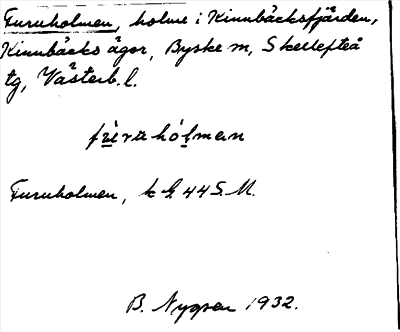 Furuholmen, holme i Kinnbäcksfjärden,
Kinnbäcks ägor, Byske sn, Skellefteå
tg, Västerb. l.
fùruhólman
Furuholmen, k G 44 S.M.
B. Nygren 1932.